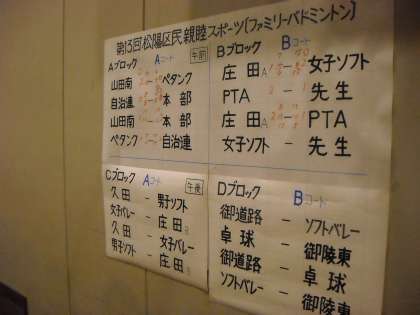 第13回松陽区民親睦スポーツ〔ファミリーバドミントン〕
Aブロック Aコート 午前
山田南 ペタンク
自治連 本部
山田南 本部
ペタンク 自治連
Bブロック Bコート
庄田A 女子ソフト
PTA 先生
庄田A PTA
女子ソフト － 先生
Cブロック Aコート 午後
久田 － 男子ソフト
女子バレー － 庄田B
久田 － 女子バレー
男子ソフト － 庄田B
Dブロック Bコート
御道路 － ソフトバレー
卓球 － 御陵東
御道路 － 卓球
ソフトバレー － 御陵東